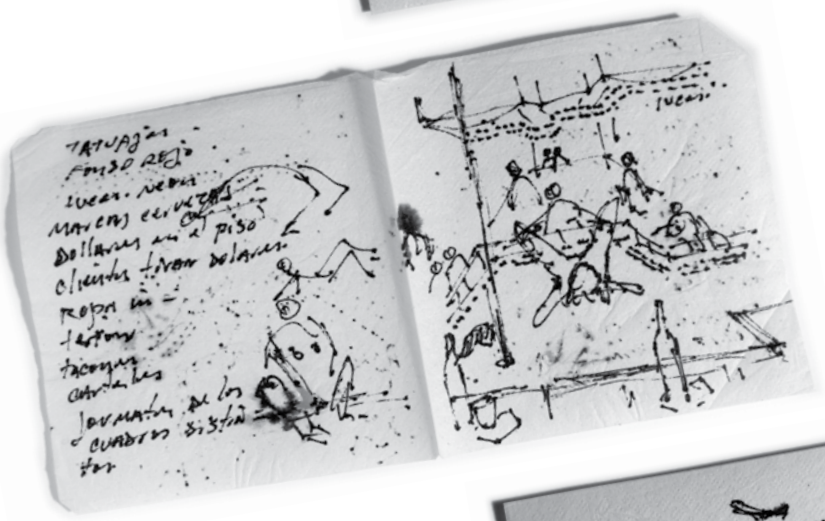 TATUAJES
FONDO ROJO
luces. neon
MARCAS cervezas
Dollares en el piso
clientes tiran dolares.
Ropa in-
terior
tacones
carteles
formatos de los
CUADROS DISTIN
tos
luces.